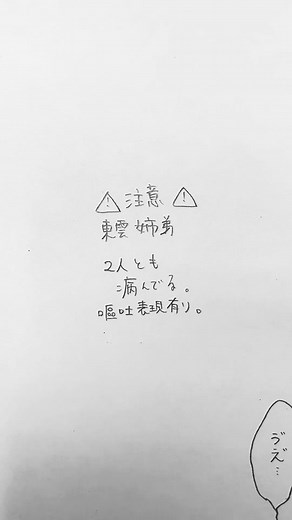 ⚠注意⚠
東雲姉弟
2人とも
病んでる。
嘔吐表現有り。
ゔえ゛…